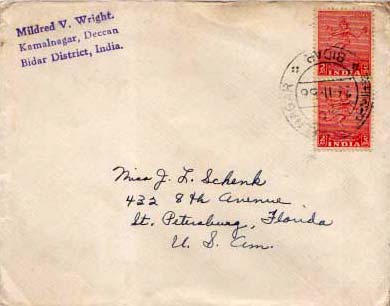 Mildred V. Wright.
Kamalnagar, Deccan
Bidar District, India.
INDIA
BIDAR
INDIA
Miss J. L. Schenk
432 8th Avenue
St. Petersburg, Florida
U. S. Am.